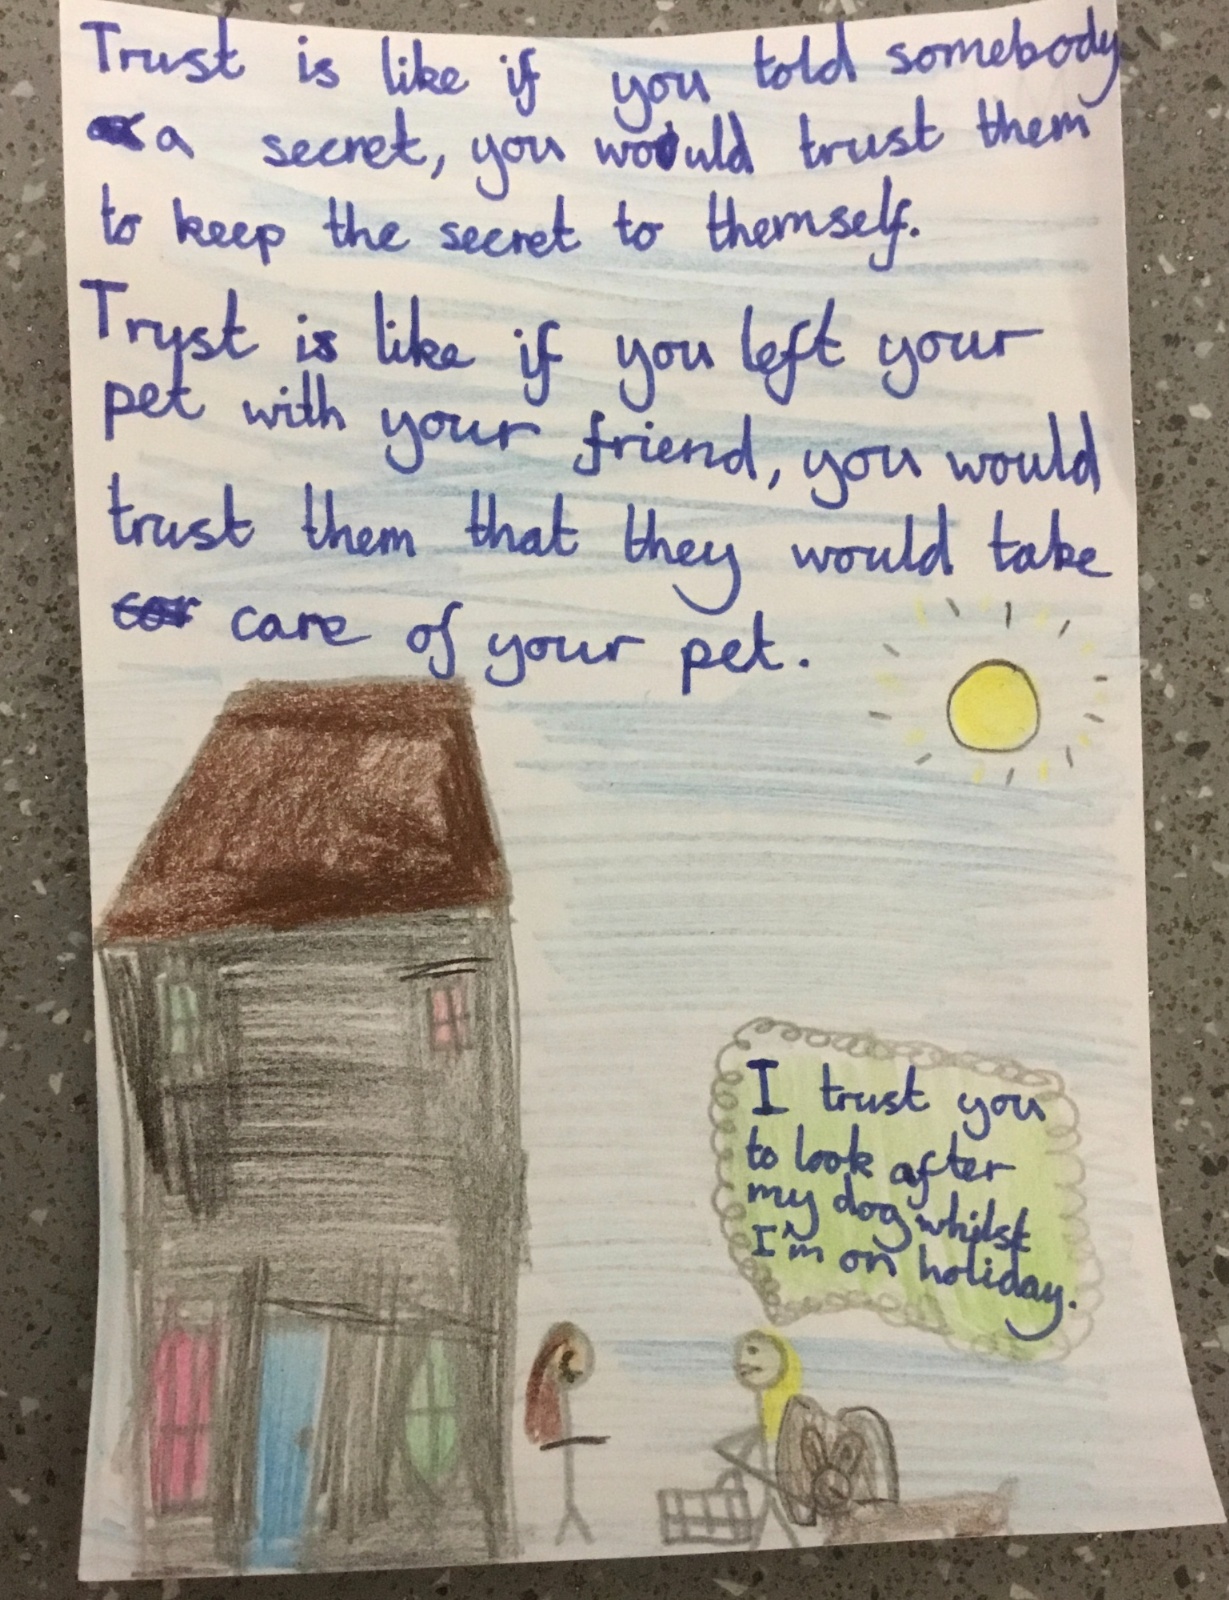 Trust is like if you told somebody
a secret, you would trust them
to keep the secret to themself.
Tryst is like if you left your
pet with your friend, you would
trust them that they would take
care of your pet.
I trust you
to look after
my dog whilst
I'm on holiday.